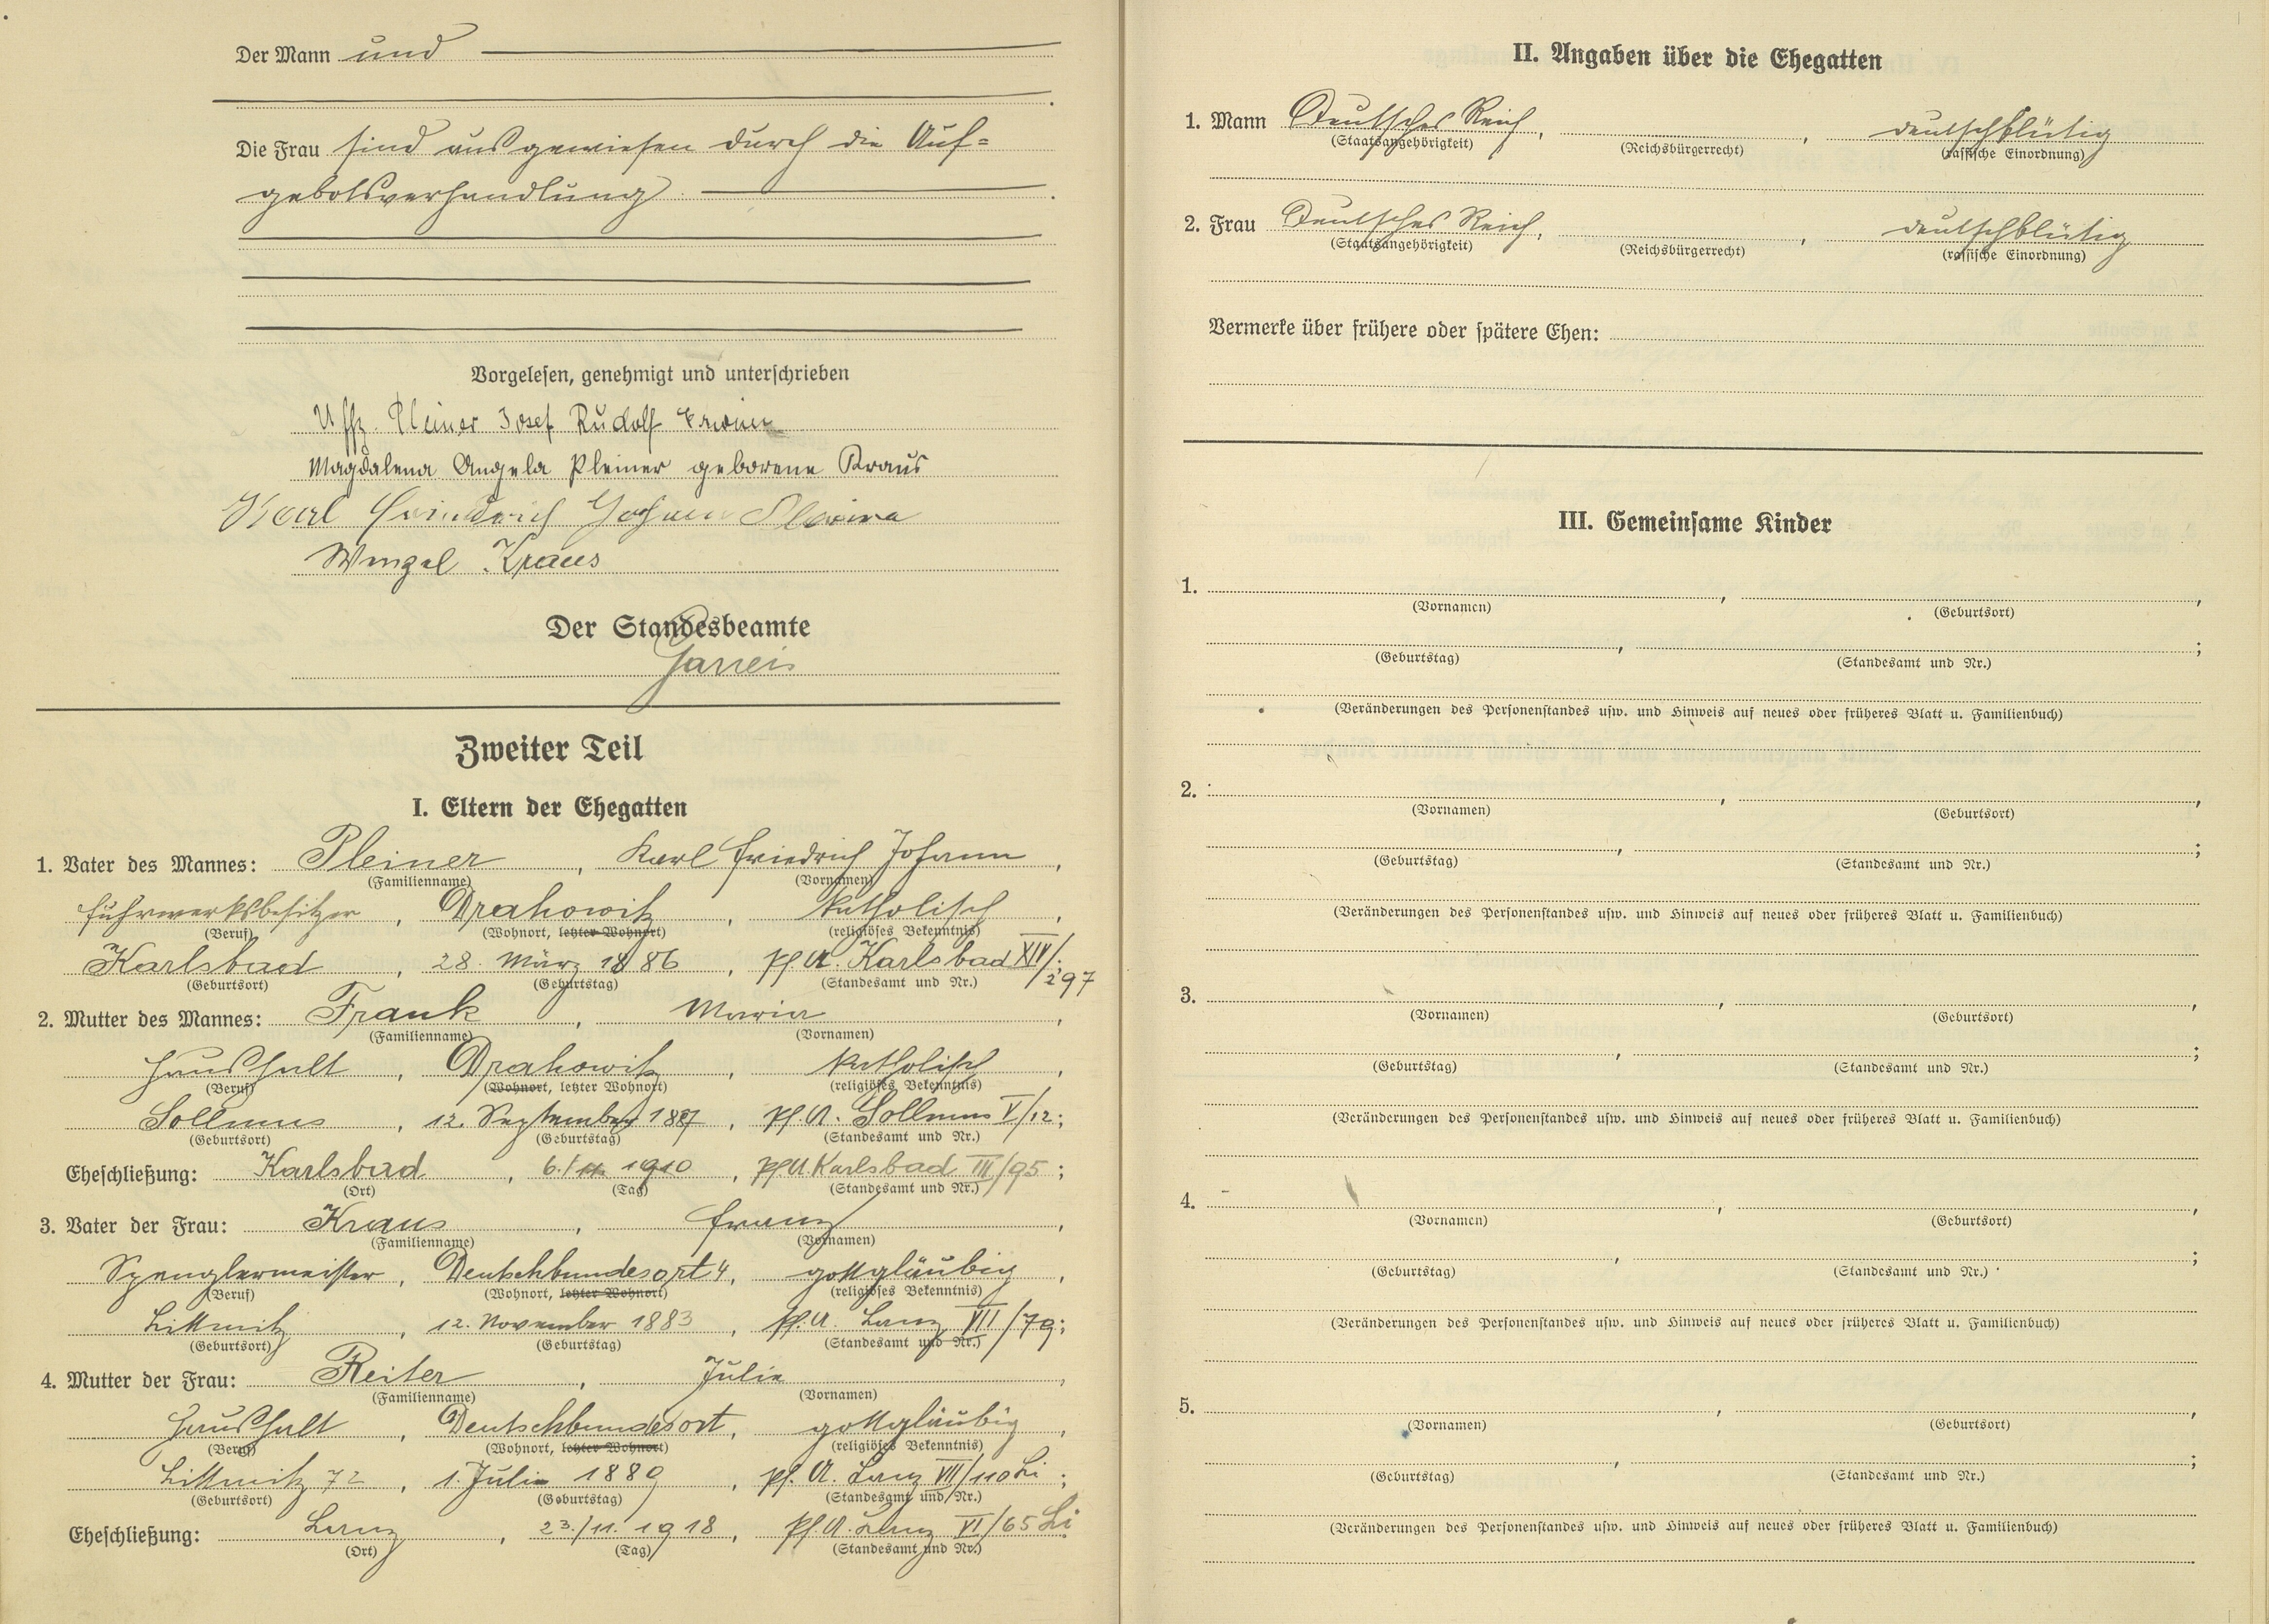 Der Mann und
Die Frau sind ausgewiesen durch die Auf=
gebotsverhandlung.
Vorgelesen, genehmigt und unterschrieben
Uffz. Pleiner Josef Rudolf Erwin
Magdalena Angela Pleiner geborene Kraus
Karl Friedrich Johann
Wenzel Kraus
Der Standesbeamte
Jarreis
Zweiter Teil
I. Eltern der Ehegatten
1. Vater des Mannes: Pleiner, Karl Friedrich Johann,
(Familienname) (Vornamen)
Fuhrwerksbesitzer, Drahowitz, katholisch,
(Beruf) (Wohnort, letzter Wohnort) (religiöses Bekenntnis)
Karlsbad, 28. März 1886, Pf.A. Karlsbad XIV/297
(Geburtsort) (Geburtstag) (Standesamt und Nr.)
2. Mutter des Mannes: Frank, Maria,
(Familienname) (Vornamen)
Haushalt, Drahowitz, katholisch,
(Beruf) (Wohnort, letzter Wohnort) (religiöses Bekenntnis)
Sollmus, 12. September 1887, Pf.A. Sollmus V/12;
(Geburtsort) (Geburtstag) (Standesamt und Nr.)
Eheschließung: Karlsbad, 6./11. 1910, Pf.A. Karlsbad III/95;
(Ort) (Tag) (Standesamt und Nr.)
3. Vater der Frau: Kraus, Franz,
(Familienname) (Vornamen)
Spenglermeister, Deutschbundesort 4, gottgläubig,
(Beruf) (Wohnort, letzter Wohnort) (religiöses Bekenntnis)
Littmitz, 12. November 1883, Pf.A. Lanz VII/79;
(Geburtsort) (Geburtstag) (Standesamt und Nr.)
4. Mutter der Frau: Reiter, Julie,
(Familienname) (Vornamen)
Haushalt, Deutschbundesort, gottgläubig,
(Beruf) (Wohnort, letzter Wohnort) (religiöses Bekenntnis)
Littmitz 72, 1. Juli 1889, Pf.A. Lanz VII/110 Li;
(Geburtsort) (Geburtstag) (Standesamt und Nr.)
Eheschließung: Lanz, 23./11. 1918, Pf.A. Lanz VI/65 Li
(Ort) (Tag) (Standesamt und Nr.)
II. Angaben über die Ehegatten
1. Mann Deutsches Reich, , deutschblütig
(Staatsangehörigkeit) (Reichsbürgerrecht) (rassische Einordnung)
2. Frau Deutsches Reich, , deutschblütig
(Staatsangehörigkeit) (Reichsbürgerrecht) (rassische Einordnung)
Vermerke über frühere oder spätere Ehen:
III. Gemeinsame Kinder
1. , ,
(Vornamen) (Geburtsort)
, ;
(Geburtstag) (Standesamt und Nr.)
(Veränderungen des Personenstandes usw. und Hinweis auf neues oder früheres Blatt u. Familienbuch)
2. , ,
(Vornamen) (Geburtsort)
, ;
(Geburtstag) (Standesamt und Nr.)
(Veränderungen des Personenstandes usw. und Hinweis auf neues oder früheres Blatt u. Familienbuch)
3. , ,
(Vornamen) (Geburtsort)
, ;
(Geburtstag) (Standesamt und Nr.)
(Veränderungen des Personenstandes usw. und Hinweis auf neues oder früheres Blatt u. Familienbuch)
4. , ,
(Vornamen) (Geburtsort)
, ;
(Geburtstag) (Standesamt und Nr.)
(Veränderungen des Personenstandes usw. und Hinweis auf neues oder früheres Blatt u. Familienbuch)
5. , ,
(Vornamen) (Geburtsort)
, ;
(Geburtstag) (Standesamt und Nr.)
(Veränderungen des Personenstandes usw. und Hinweis auf neues oder früheres Blatt u. Familienbuch)